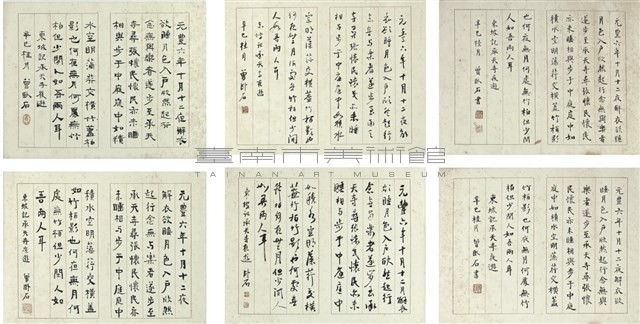 元豐六年十月十二夜解衣
欲睡月色入戶欣然起行
念無與樂者遂步至承天
寺尋張懷民懷民亦未睡
相與步于中庭庭中如積
水空明藻荇交橫蓋竹柏
影也何夜無月何處無竹
柏但少閒人如吾兩人耳
東坡記承天寺夜遊
辛巳桂月 曾卧石
元豐六年十月十二夜解
衣欲睡月色入戶欣然起行
念吾與樂者遂步至承天
寺尋張懷民懷民亦未睡
相與步于中庭中如積水
空明藻荇交橫蓋竹柏影也
何夜無月何處無竹柏但少閒
人如吾兩人耳
東坡記承天寺夜遊
辛巳桂月 曾卧石
元豐六年十月十二夜解衣欲睡
月色入戶欣然起行念無與樂者
遂步至承天寺尋張懷民懷民
亦未睡相與步于中庭庭中如
積水空明藻荇交橫蓋竹柏影
也何夜無月何處無竹柏但少閒
人如吾兩人耳
東坡記承天寺夜遊
辛巳桂月 曾卧石書
臺南市美術館
TAINAN ART MUSEUM
元豐六年十月十二夜
解衣欲睡月色入戶欣然
起行念無與樂者遂步至
承天寺尋張懷民懷民亦
未睡相與步于中庭庭中
積水空明藻荇交橫蓋
如竹柏影也何夜無月何
處無竹柏但少閒人如
吾兩人耳
東坡記承天寺夜遊 曾卧石
元豐六年十月十二夜解衣
欲睡月色入戶欣然起行
念無與樂者遂步至承
天寺尋張懷民懷民亦未
睡相與步于中庭庭中
如積水空明藻荇交橫
蓋竹柏影也何夜無
月何處無竹柏但少閒人
如吾兩人耳
東坡記承天寺夜遊 卧石
元豐六年十月十二夜解衣欲
睡月色入戶欣然起行念無與
樂者遂步至承天寺尋張懷
民懷民亦未睡相與步于中
庭庭中如積水空明藻荇交橫蓋
竹柏影也何夜無月何處無竹
柏但少閒人如吾兩人耳
東坡記承天寺夜遊
辛巳桂月 曾卧石書